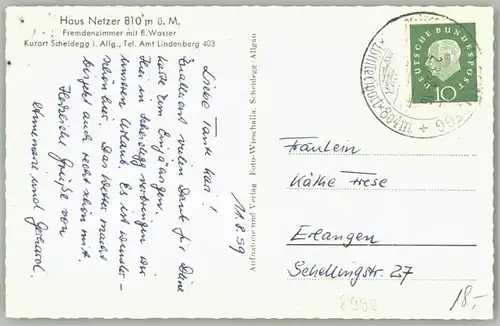 Haus Netzer 810 m ü. M.
Fremdenzimmer mit fl. Wasser
Kurort Scheidegg i. Allg., Tel. Amt Lindenberg 403
11.8.59
Liebe Tante Käthi!
Zuallererst vielen Dank für Deine
Karte zum Einjährigen.
Hier in Scheidegg verbringen wir
unseren Urlaub. Es ist wunder-
schön hier. Das Wetter macht
bis jetzt auch recht schön mit.
Herzliche Grüße von
Annemarie und Gerhard.
Aufnahme und Verlag Foto-Wiechalla, Scheidegg-Allgäu
DEUTSCHE BUNDESPOST
10
Fräulein
Käthe Frese
Erlangen
Schellingstr. 27
8998
18,-